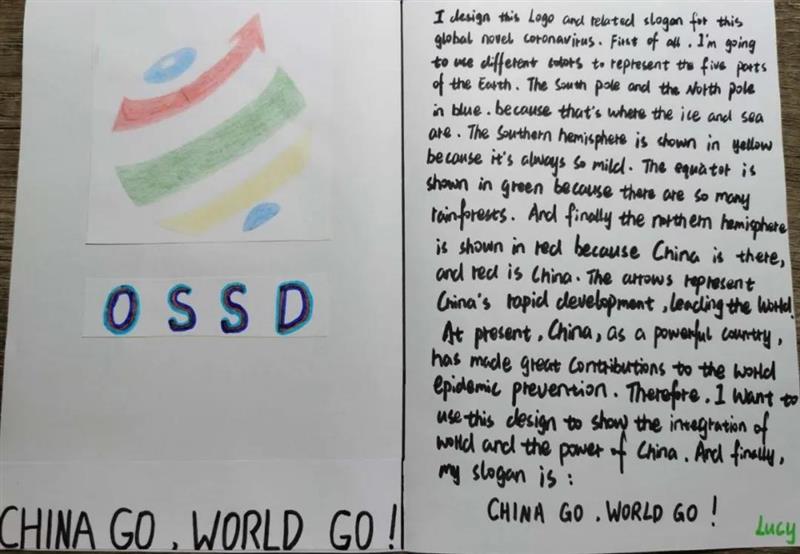 OSSD
CHINA GO, WORLD GO!
I design this Logo and related slogan for this
global novel coronavirus. First of all, I'm going
to use different colors to represent the five parts
of the Earth. The South pole and the North pole
in blue. because that's where the ice and sea
are. The Southern hemisphere is shown in yellow
because it's always so mild. The equator is
shown in green because there are so many
rainforests. And finally the northern hemisphere
is shown in red because China is there,
and red is China. The arrows represent
China's rapid development, leading the world.
At present, China, as a powerful country,
has made great contributions to the world
epidemic prevention. Therefore, I want to
use this design to show the integration of
world and the power of China. And finally,
my slogan is:
CHINA GO, WORLD GO!
Lucy